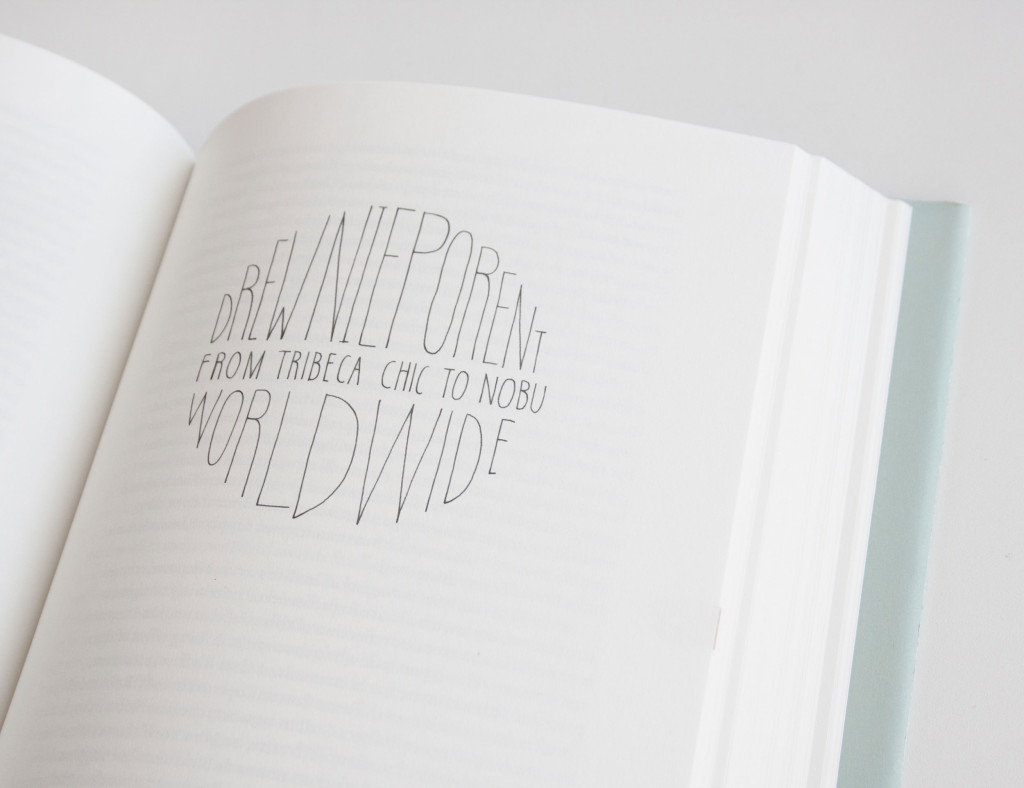 DREW NIEPORENT
FROM TRIBECA CHIC TO NOBU
WORLDWIDE